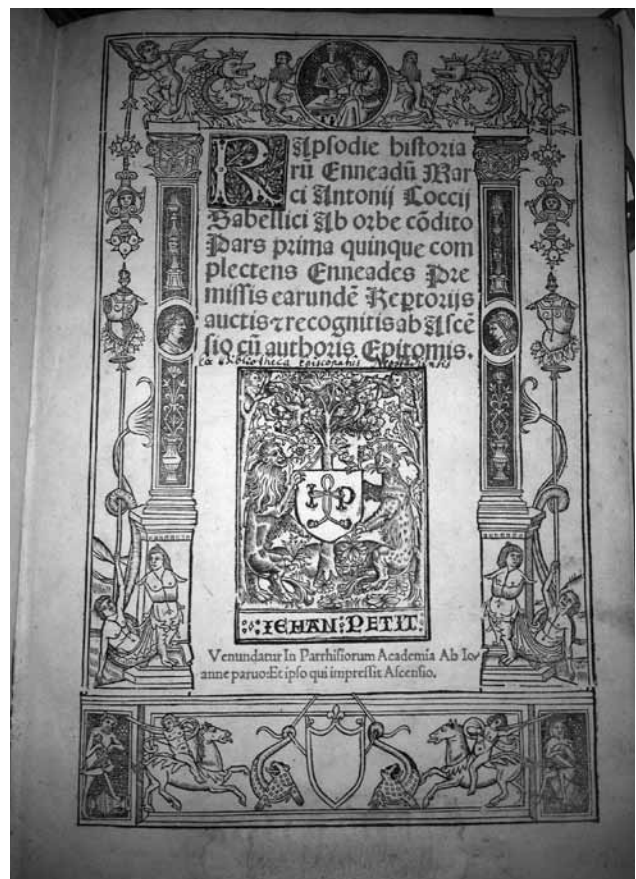 RApsodie historia
rũ Enneadũ Mar
ci Antonij Coccij
Sabellici Ab orbe cõdito
Pars prima quinque com
plectens Enneades Pre
missis earundẽ Reptorijs
auctis ⁊ recognitis ab Ascẽ
sio cũ authoris Epitomis.
Ex Bibliotheca Episcopatus
IHP
IEHAN: PETIT
Venundatur In Parrhisiorum Academia Ab Io/
anne paruo: Et ipso qui impressit Ascensio.